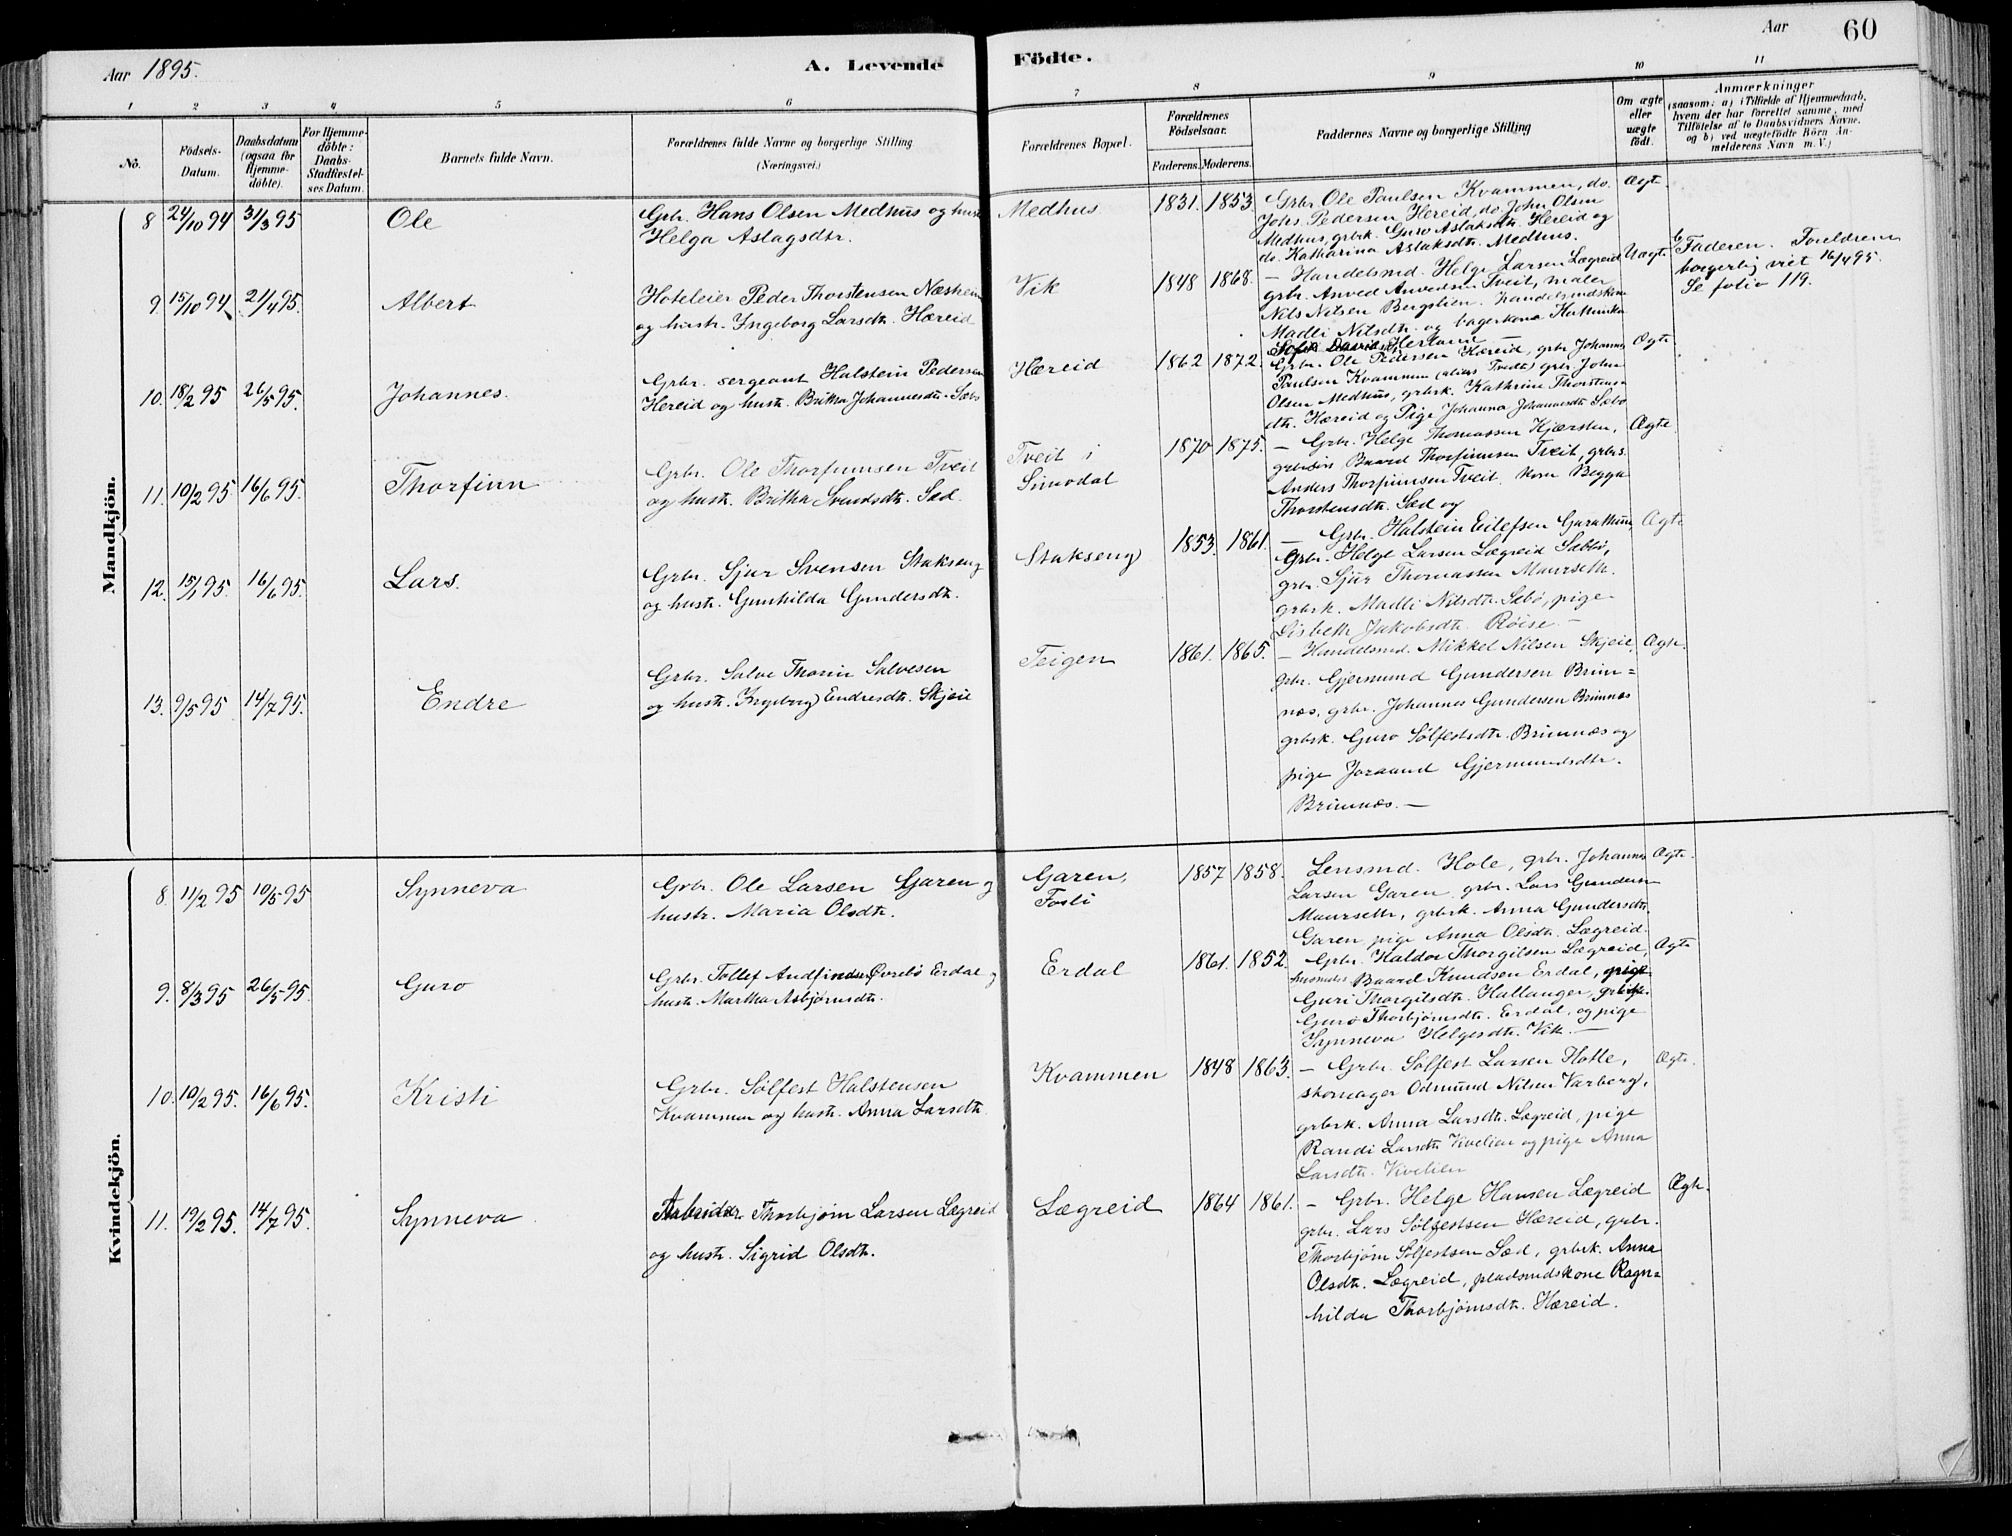 Aar 1895.
A. Levende
Födte.
Aar
60
1
2
3
4
5
6
7
8
9
10
11
No.
Födsels-
Datum.
Daabsdatum
(ogsaa for
Hjemme-
döbte).
For Hjemme-
döbte:
Daabs-
Stadfæstel-
ses Datum.
Barnets fulde Navn.
Forældrenes fulde Navne og borgerlige Stilling
(Næringsvei.)
Forældrenes Bopæl.
Forældrenes
Födselsaar.
Faderens. Moderens.
Faddernes Navne og borgerlige Stilling
Om ægte
eller
uægte
födt.
Anmærkninger
(saasom: a) i Tilfælde af Hjemmedaab,
hvem der har forrettet samme, med
Tilföielse af to Daabsvidners Navne,
og b) ved uægtefödte Börn An-
melderens Navn m. V.)
Mandkjön.
8 24/10 94 31/3 95
Ole
Grbr. Hans Olsen Medhus og hust
Helga Aslagsdtr.
Medhus
1831. 1853
Grbr Ole Paulsen Kvammen, do.
Johs. Pedersen Hereid, do John Olsen
Medhus, grbrk. Guro Aslaksdtr. Hereid og
do. Katharina Aslaksdtr. Medhus.
Ægte
9. 15/10 94 21/4 95.
Albert
Hoteleier Peder Thorstensen Næsheim
og hustr. Ingeborg Larsdtr. Hæreid
Vik
1848 1868.
– Handelsmd. Helge Larsen Lægreid
grbr. Anved Anvedsen Tveit, maler
Nils Nilsen Bergslien. handelsmdskone
Madli Nilsdtr. og bagerkone
Herland
Uægte
b Faderen. Foreldrene
borgerlig viet 16/4 95.
Se folio 119.
10. 18/2 95 26/5 95.
Johannes.
Grbr. sergeant Halstein Pedersen
Hereid og hustr. Britha Johannesdtr. Sæbø
Hæreid
1862 1872.
Grbr. Ole Pedersen Hæreid, grbr Johannes
Paulsen Kvammen (alias Tveit) grbr John
Olsen Medhus, grbrk. Kathrine Thorstens-
dtr. Hæreid og Pige Johanna Johannesdtr Sæbø
Ægte
11. 10/2 95 16/6 95.
Thorfinn
Grbr. Ole Thorfinnsen Tveit
og hustr. Britha Svendsdtr. Sæd.
Tveit i
Simodal
1870 1875.
– Grbr. Helge Thomassen Kjærsten,
grbrsøn Baard Thorfinnsen Tveit, grbrs.
Anders Thorfinnsen Tveit, kone Begga
Thorstensdtr. Sæd og
Ægte
12. 15/1 95. 16/6 95.
Lars.
Grbr. Sjur Svensen Stakseng
og hustr. Gunhilda Gundersdtr.
Stakseng
1853. 1861.
– Grbr. Halstein Eilefsen Garathun,
Grbr. Helge Larsen Lægreid Sæbbø,
grbr. Sjur Thomassen Maurseth.
grbrk. Madli Nilsdtr. Sæbø, pige
Lisbeth Jakobsdtr. Röise. –
Ægte
13. 9/5 95 14/7 95.
Endre
Grbr. Salve Thorin Salvesen
og hustr. Ingeborg Endresdtr. Skjeie
Teigen
1861. 1865.
– Handelsmd. Mikkel Nilsen Skjeie,
grbr. Gjermund Gundersen Brim-
næs, grbr. Johannes Gundersen Brimnæs
grbrk. Guro Sølfestsdtr. Brimnæs og
pige Joraand Gjermundsdtr.
Brimnæs. –
Ægte.
Kvindekjön.
8. 11/2 95 10/5 95
Synneva
Grbr. Ole Larsen Garen og
hustr. Maria Olsdtr.
Garen,
Fosli
1857 1858.
Lensmd. Hole, grbr. Johannes
Larsen Garen, grbr. Lars Gundersen
Maurseth, grbrk. Anna Gundersdtr.
Garen, pige Anna Olsdtr. Lægreid.
Ægte.
9. 8/3 95 26/5 95.
Guro
Grbr. Tollef Andfindsen Øvrebø Erdal og
hustr. Martha Asbjørnsdtr.
Erdal
1861. 1852.
Grbr. Haldor Thorgilsen Lægreid,
husmds Baard Knudsen Erdal, pige
Guri Thorgilsdtr. Hallanger, grbrk.
Guro Thorbjørnsdtr. Erdal, og pige
Synneva Helgesdtr. Vik. –
Ægte
10. 10/2 95. 16/6 95.
Kristi
Grbr. Sölfest Halstensen
Kvammen og hustr. Anna Larsdtr.
Kvammen
1848 1863.
– Grbr. Sölfest Larsen Hotle,
skomager Odmund Nilsen Varberg,
grbrk. Anna Larsdtr. Lægreid, pige
Randi Larsdtr Kvelien og pige Anna
Larsdtr. Kvelien
Ægte.
11. 19/2 95. 14/7 95.
Synneva
Arbeider Thorbjørn Larsen Lægreid
og hustr. Sigrid Olsdtr.
Lægreid
1864 1861.
– Grbr. Helge Hansen Lægreid
grbr. Lars Sølfestsen Hæreid, grbr.
Thorbjørn Sølfestsen Sæd, grbrk. Anna
Olsdtr. Lægreid, pladsmdskone Ragn-
hilda Thorbjørnsdtr. Hæreid.
Ægte.